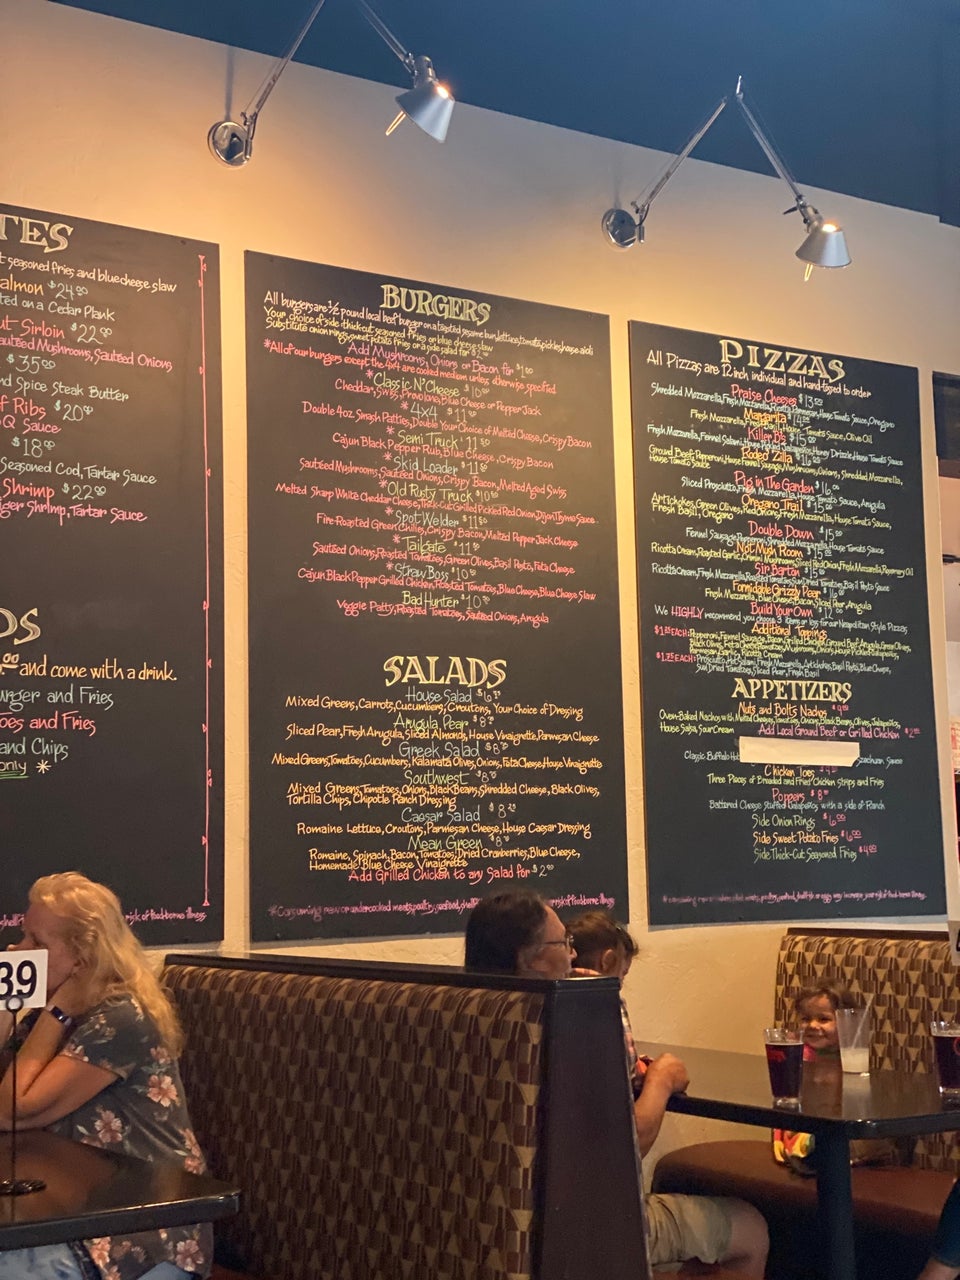 TES
t seasoned fries and bluecheese slaw
almon $24.00
ted on a Cedar Plank
ut Sirloin $22.00
autéed Mushrooms, Sautéed Onions
$35.00
nd Spice Steak Butter
f Ribs $20.00
Q Sauce
$18.00
Seasoned Cod, Tartar Sauce
Shrimp $22.00
ger Shrimp, Tartar Sauce
DS
.00 and come with a drink.
urger and Fries
oes and Fries
and Chips
only *
risk of foodborne illness
39
BURGERS
All burgers are 1/2 pound local beef burger on a toasted sesame bun, lettuce, tomato, pickles, house aioli
Your choice of side: thick-cut seasoned fries or blue cheese slaw
Substitute onion rings, sweet potato fries or a side salad for $2.00
Add Mushrooms, Onions or Bacon for $1.00
*All of our burgers except the 4x4 are cooked medium unless otherwise specified
*Classic N' Cheese $10.00
Cheddar, Swiss, Provolone, Blue Cheese or Pepper Jack
*4x4 $11.00
Double 4oz. Smash Patties, Double Your Choice of Melted Cheese, Crispy Bacon
*Semi Truck $11.50
Cajun Black Pepper Rub, Blue Cheese, Crispy Bacon
*Skid Loader $11.00
Sautéed Mushrooms, Sautéed Onions, Crispy Bacon, Melted Aged Swiss
*Old Rusty Truck $10.50
Melted Sharp White Cheddar Cheese, Thick-Cut Grilled Pickled Red Onion, Dijon Thyme Sauce
*Spot Welder $11.50
Fire-Roasted Green Chilies, Crispy Bacon, Melted Pepper Jack Cheese
*Tailgate $11.00
Sautéed Onions, Roasted Tomatoes, Green Olives, Basil Pesto, Feta Cheese
*Straw Boss $10.50
Cajun Black Pepper Grilled Chicken, Roasted Tomatoes, Blue Cheese, Blue Cheese Slaw
Bad Hunter $10.00
Veggie Patty, Roasted Tomatoes, Sautéed Onions, Arugula
SALADS
House Salad $6
Mixed Greens, Carrots, Cucumbers, Croutons, Your Choice of Dressing
Arugula Pear $8
Sliced Pear, Fresh Arugula, Sliced Almonds, House Vinaigrette, Parmesan Cheese
Greek Salad $8
Mixed Greens, Tomatoes, Cucumbers, Kalamata Olives, Onions, Feta Cheese, House Vinaigrette
Southwest $8
Mixed Greens, Tomatoes, Onions, Black Beans, Shredded Cheese, Black Olives,
Tortilla Chips, Chipotle Ranch Dressing
Caesar Salad $8
Romaine Lettuce, Croutons, Parmesan Cheese, House Caesar Dressing
Mean Green $8
Romaine, Spinach, Bacon, Tomatoes, Dried Cranberries, Blue Cheese,
Homemade Blue Cheese Vinaigrette
Add Grilled Chicken to any Salad for $2.00
*Consuming raw or undercooked meats, poultry, seafood, shell risk of foodborne illness
PIZZAS
All Pizzas are 12 inch individual and hand-tossed to order
Praise Cheeses $13
Shredded Mozzarella, Fresh Mozzarella, Ricotta, Parmesan, House Tomato Sauce, Oregano
Margarita $14
Fresh Mozzarella, Fresh Basil, House Tomato Sauce, Olive Oil
Killer B's $15
Fresh Mozzarella, Fennel Salami, House Pickled Jalapeños, Honey Drizzle, House Tomato Sauce
Rodeo Zilla $16
Ground Beef, Pepperoni, House Fennel Sausage, Mushrooms, Onions, Shredded Mozzarella,
House Tomato Sauce
Pig in The Garden $16
Sliced Prosciutto, Fresh Mozzarella, House Tomato Sauce, Arugula
Oregano Trail $15
Artichokes, Green Olives, Red Onions, Fresh Mozzarella, House Tomato Sauce,
Fresh Basil, Oregano
Double Down $15
Fennel Sausage, Pepperoni, Shredded Mozzarella, House Tomato Sauce
Not Mush Room $15
Ricotta Cream, Roasted Garlic, Crimini Mushrooms, Sliced Red Onion, Fresh Mozzarella, Rosemary Oil
Sir Barton $15
Ricotta Cream, Fresh Mozzarella, Roasted Tomatoes, Sun Dried Tomatoes, Basil Pesto Sauce
Formidable Grizzly Pear $16
Fresh Mozzarella, Blue Cheese, Bacon, Sliced Pear, Arugula
Build Your Own $12
We HIGHLY recommend you choose 3 items or less for our Neapolitan Style Pizzas
Additional Toppings
$1.25 EACH: Pepperoni, Fennel Sausage, Bacon, Grilled Chicken, Ground Beef, Arugula, Green Olives,
Black Olives, Feta Cheese, Tomatoes, Mushrooms, Onions, House Pickled Jalapeños,
Parmesan, Garlic, Ricotta Cream
$1.75 EACH: Prosciutto, Hot Salami, Fresh Mozzarella, Artichokes, Basil Pesto, Blue Cheese,
Sun Dried Tomatoes, Sliced Pear, Fresh Basil
APPETIZERS
Nuts and Bolts Nachos $9
Oven-Baked Nachos with Melted Cheese, Tomatoes, Onions, Black Beans, Olives, Jalapeños,
House Salsa, Sour Cream
Add Local Ground Beef or Grilled Chicken $2
Classic Buffalo Hot Szechuan, Sauce
Chicken Toes
Three Pieces of Breaded and Fried Chicken Strips and Fries
Poppers $8
Battered Cheese Stuffed Jalapeños with a side of Ranch
Side Onion Rings $6.00
Side Sweet Potato Fries $6.00
Side Thick-Cut Seasoned Fries $4.00
*Consuming raw or undercooked meats, poultry, seafood, shellfish or eggs may increase your risk of foodborne illness